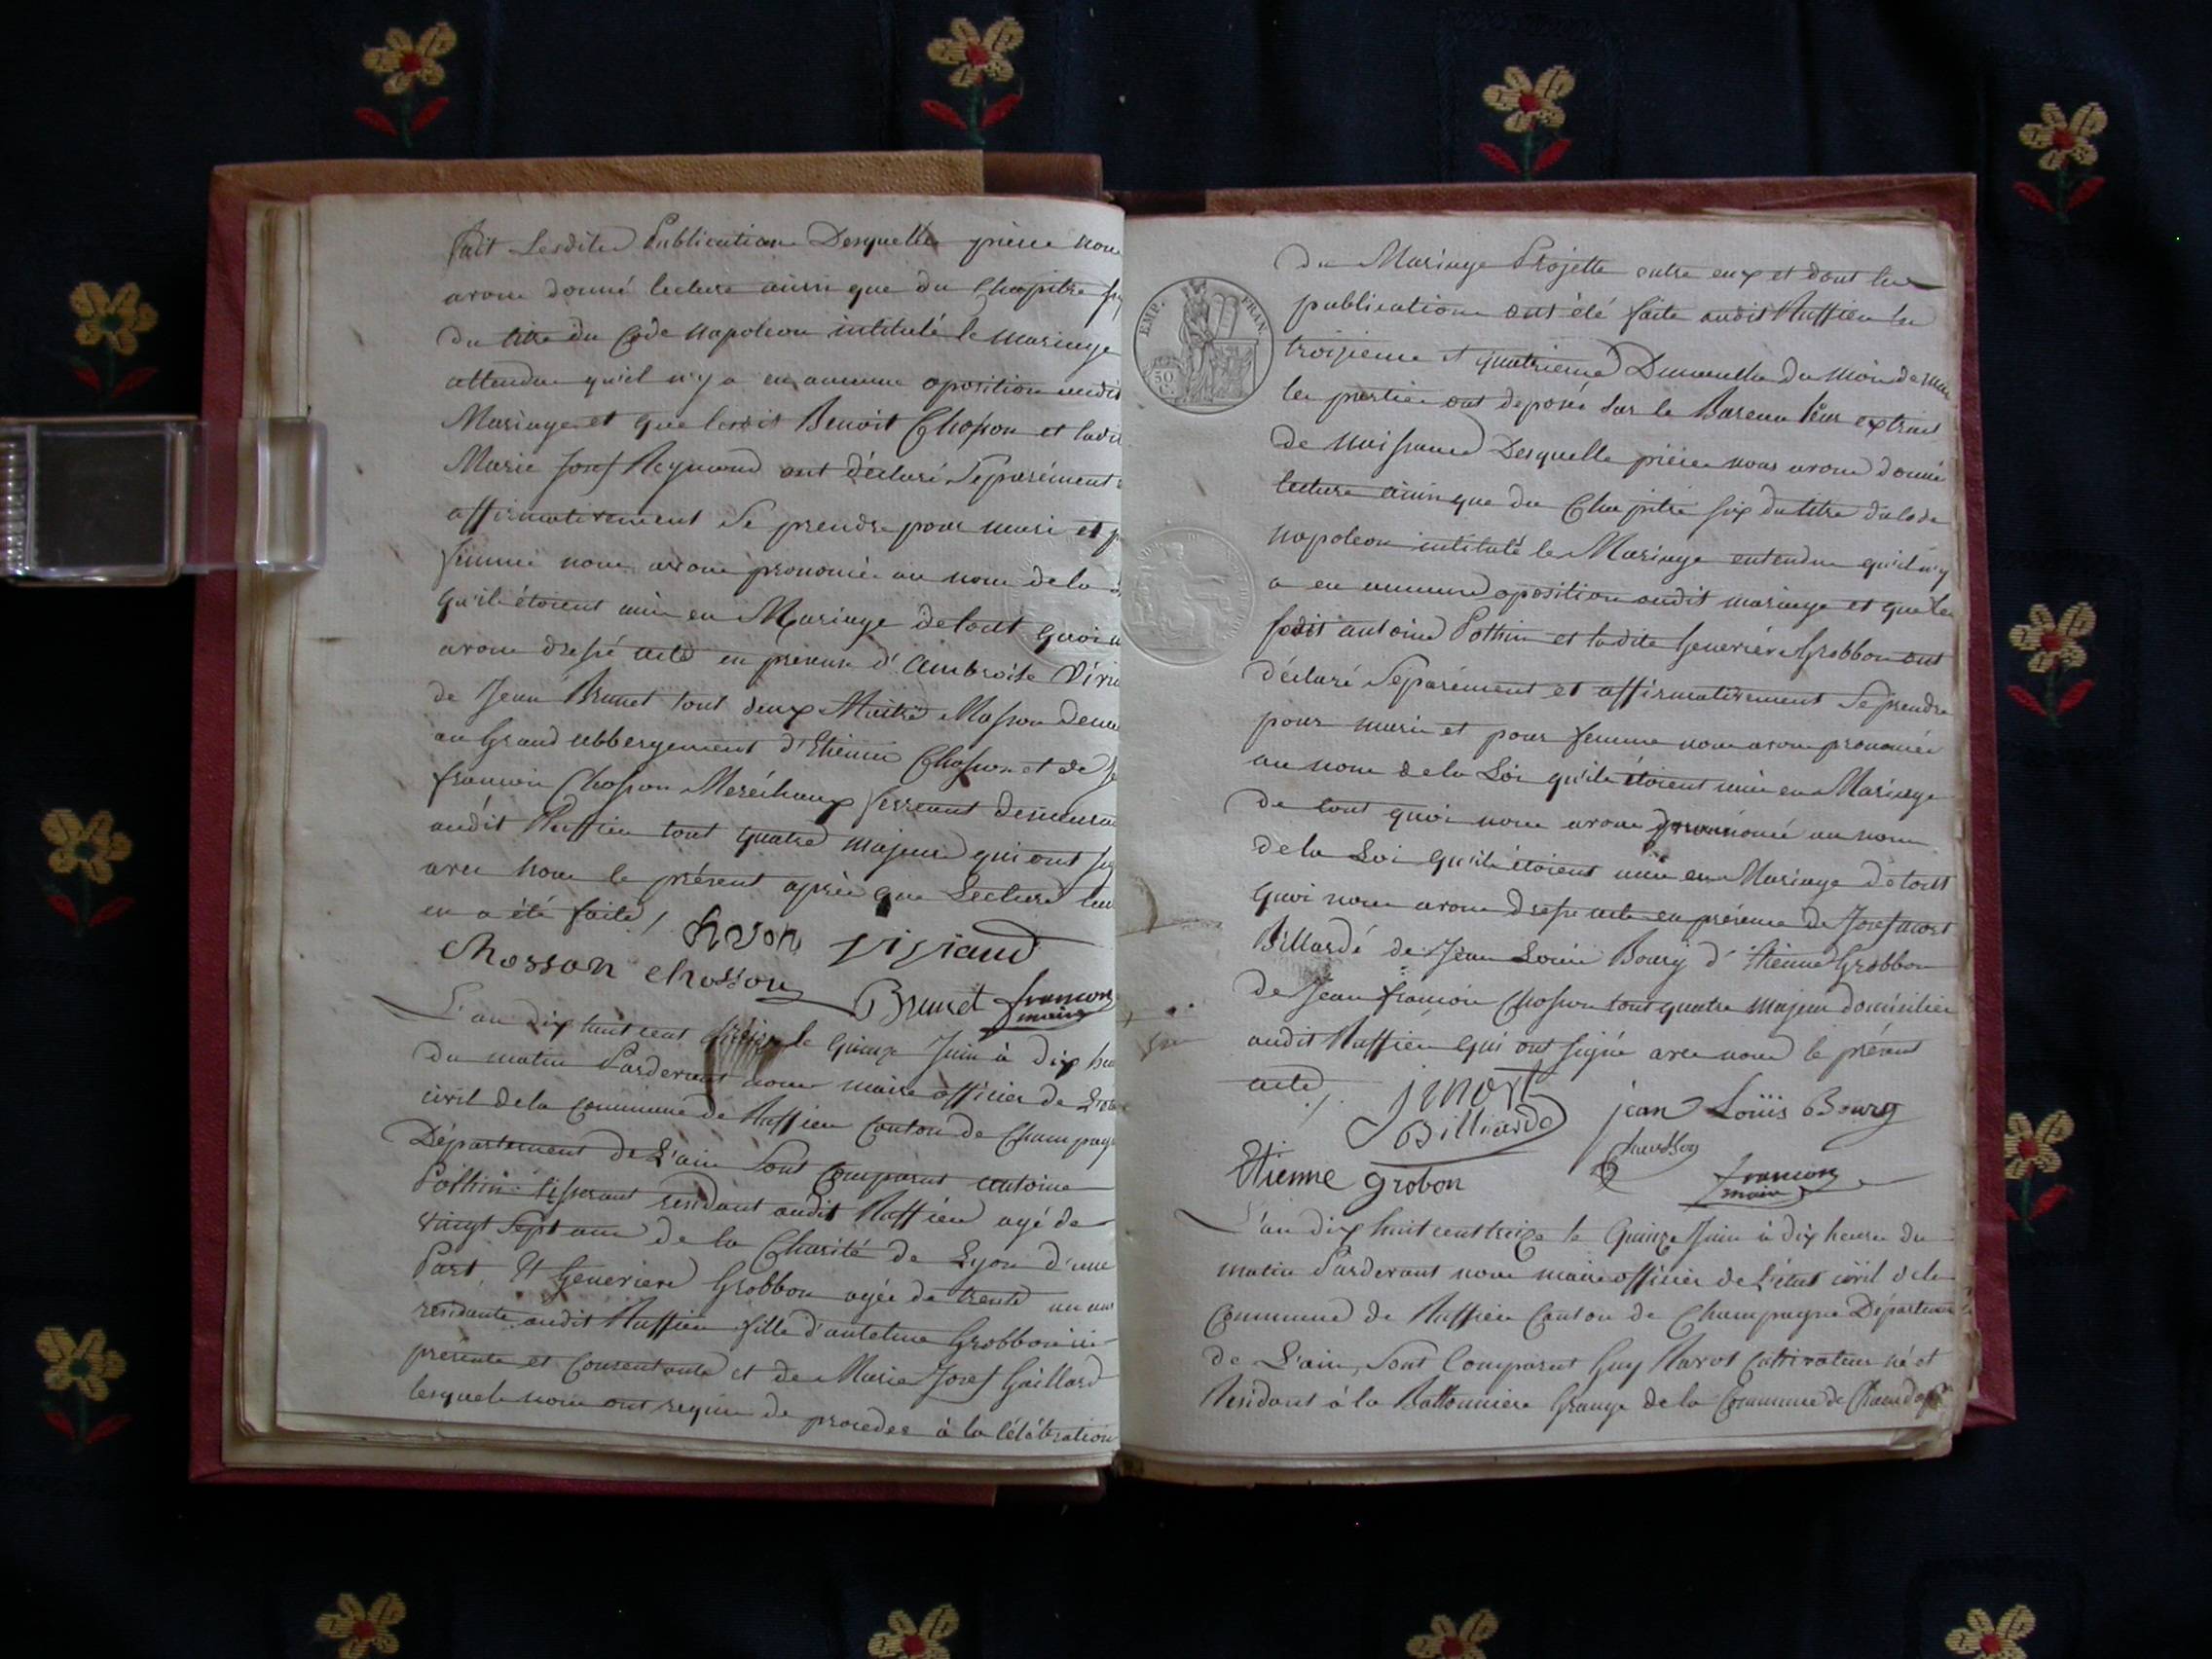 fait Lesdites Publications Desquelles pièces nous
avons donné lecture ainsi que du Chapitre
du titre du Code Napoleon intitulé le mariage
attendu qu'il n'y a eu aucune oposition audit
Mariage et que lesdit Benoit Chosson et ladit
Marie Josef Reymond ont déclaré Séparément
affirmativement Se prendre pour mari et p
femme nous avons prononcé au nom de la
qu'ils étoient unis en Mariage de tout quoi n
avons dressé acte en présence d'Ambroise
de Jean Brunet tout deux Maitre Masson
au Grand abbergement d'Etienne Chosson et de
françois Chosson Maréchaux ferrant demeurant
audit Ruffieu tout quatre majeurs qui ont
avec nous le présent après que Lecture leur
en a été faite /
Chosson chosson
Brunet françon
maire
L'an dix huit cent treize le quinze Juin à dix heu
du matin Pardevant nous maire officier de
civil de la commune de Ruffieu Canton de Champagn
Département de L'ain Sont Comparut antoine
Pothin tisserant residant audit Ruffieu agé de
vingt Sept ans de la Charité de Lyon d'une
Part Et Genevieve Grobbon agée de trente un ans
residante audit Ruffieu fille d'antelme Grobbon ici
présente et Consentante et de Marie Josef Gaillard
lesquels nous ont requis de proceder à la Célébration
EMP. FRAN.
50 C.
du Mariage Projetté entre eux et dont les
publications ont été faite audit Ruffieu les
troisieme et quatrieme Dimanche du mois de mai
les parties ont deposé sur le Bureau leur extrait
de naissance Desquelles pièces nous avons donné
lecture ainsi que du Chapitre six du titre du Code
Napoleon intitulé le Mariage entendu qu'il n'y
a eu aucune oposition audit mariage et que les
sodit antoine Pothin et ladite Genevieve Grobbon ont
déclaré Séparément et affirmativement Se prendre
pour mari et pour femme nous avons prononcé
au nom de la Loi qu'ils étoient unis en Mariage
de tout quoi nous avons prononcé au nom
de la Loi qu'ils étoient unis en Mariage de tout
quoi nous avons dressé acte en présence de Josef mort
Billardé de Jean Louis Bourg d'Etienne Grobbon
de Jean françois Chosson tout quatre majeur domicilier
audit Ruffieu qui ont signé avec nous le présent
acte /.
j mort Billiarde jean Loüis Bourg
Etienne grobon
françon
maire
L'an dix huit cent treize le quinze Juin à dix heures du
matin Pardevant nous maire officier de L'état civil de la
Commune de Ruffieu Canton de Champagne Département
de L'ain, Sont Comparut Guy Ravot Cultivateur né et
Residant à la Battonniere Grange de la Commune de